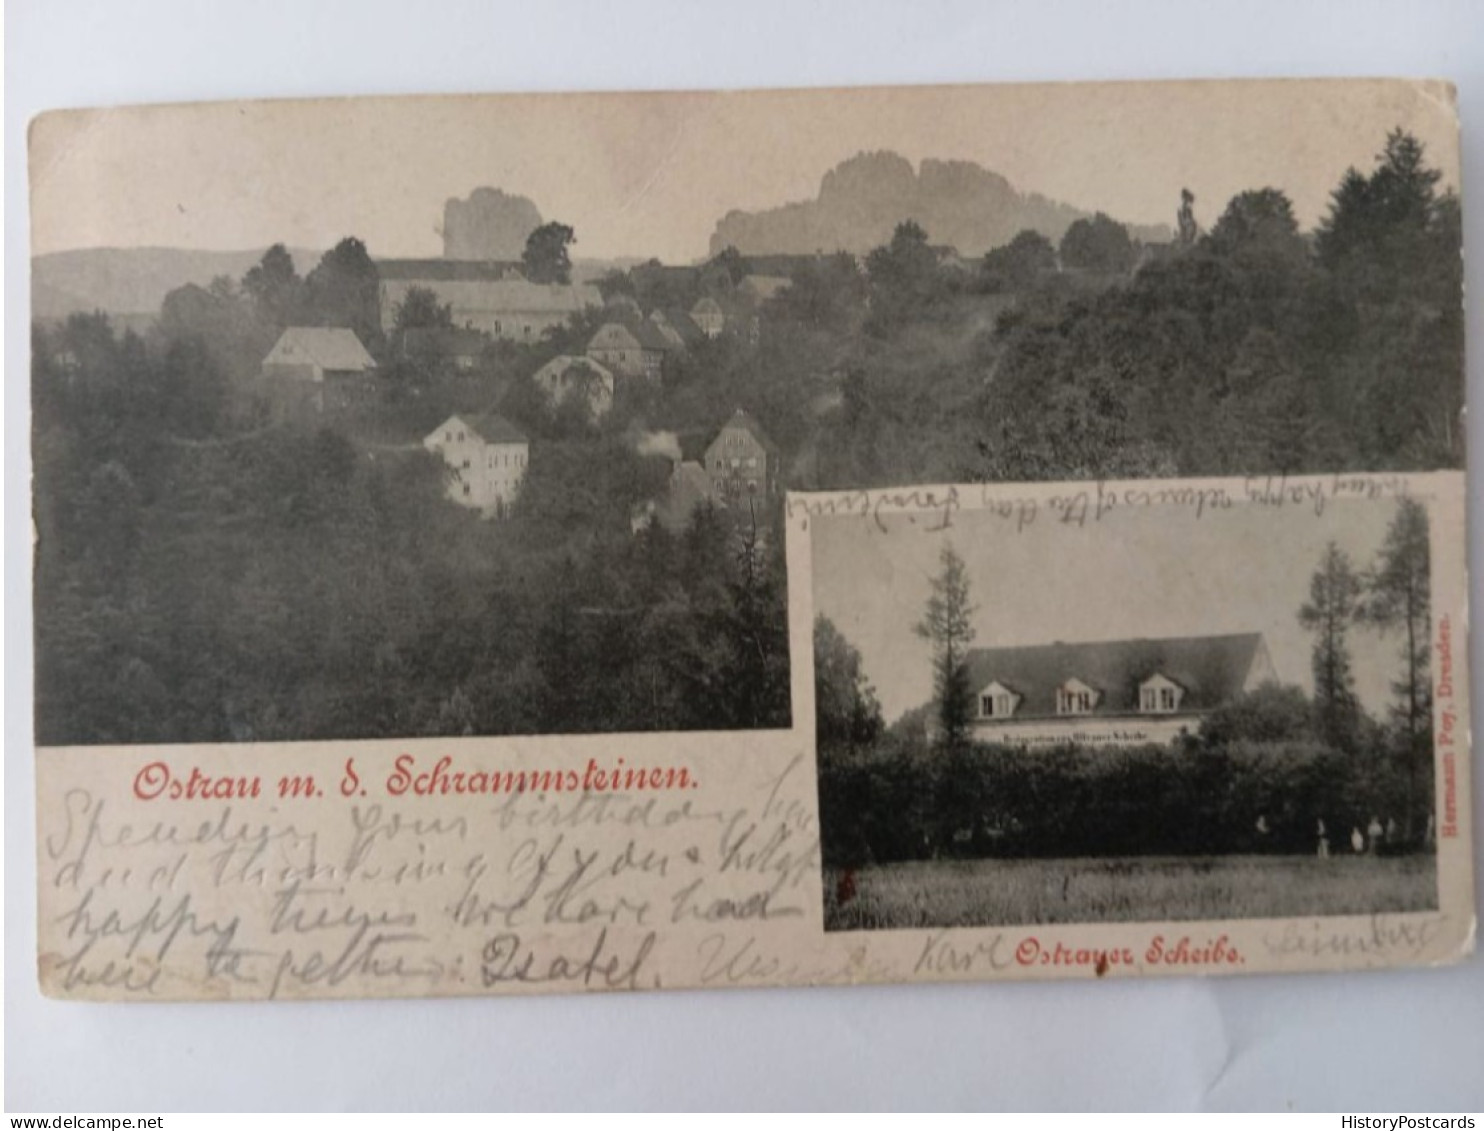 many happy returns of the day
Restauration zur Ostrauer Scheibe
Hermann Poy, Dresden.
Ostrau m. d. Schrammsteinen.
Spending your birthday here
and thinking of you &
happy times we have had
here together. Isabel.
Karl
Ostrauer Scheibe.
HistoryPostcards
delcampe.net